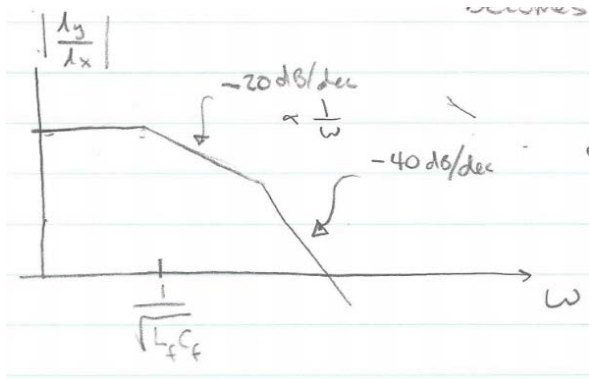 becomes
|iy/ix|
-20 dB/dec
∝ 1/ω
-40 dB/dec
ω
1/√L_f C_f